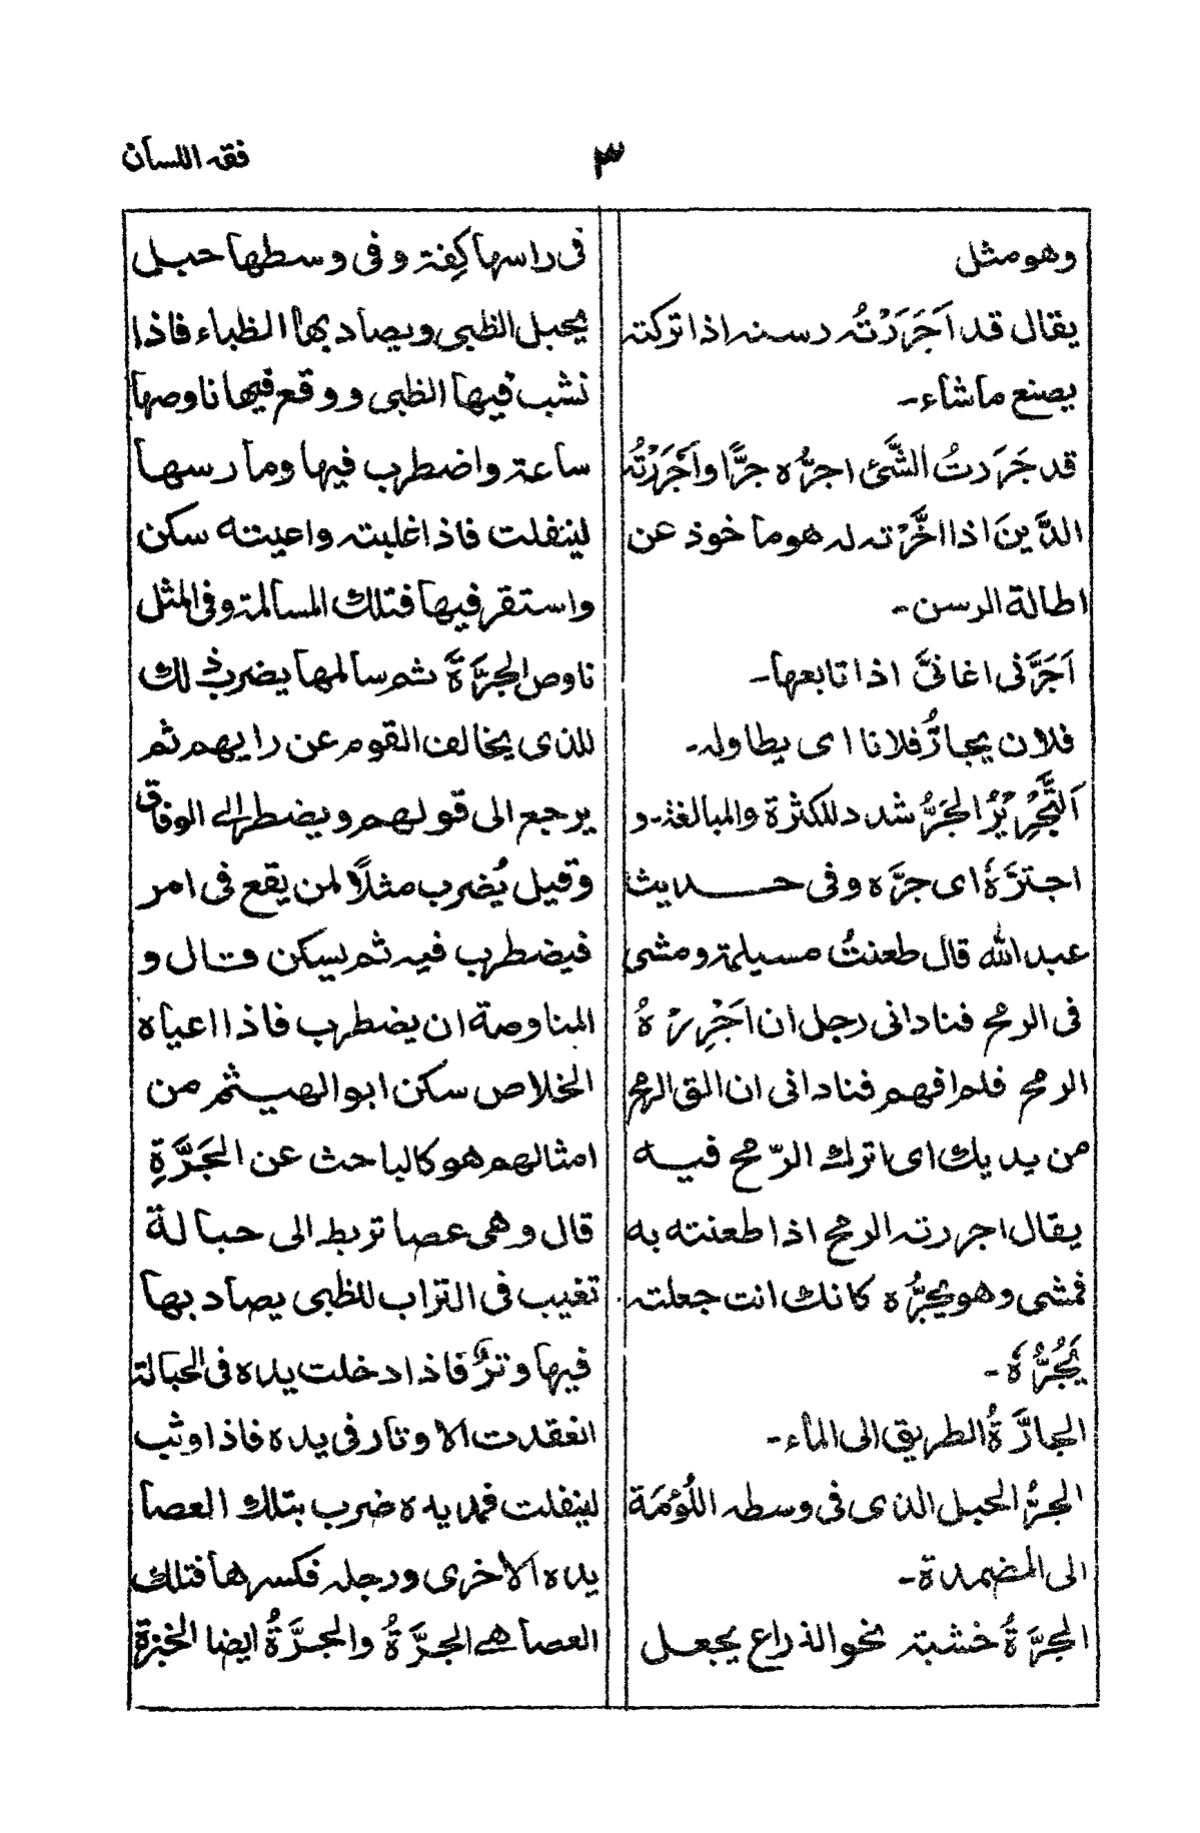 فقہ اللسان
٣
وهو مثل
يقال قد اَجَرَرْتُہ رسنہ اذا تركتہ
يصنع ما شاء ـ
قد جَرَرتُ الشَّئ اجرُّه جرًّا واَجْرَرْتُہ
الدَّينَ اذا اخَّرْتہ لہ هو ما خوذ عن
اطالة الرسن ـ
اَجَرَّنی اغانیَّ اذا تابعها ـ
فلان يجارُّ فلانا ای يطاولہ ـ
اَلتَّجْرِيْرُ الجَرُّ شدد للكثرة والمبالغة ـ و
اجترَّهٗ ای جرَّه وفی حديث
عبد الله قال طعنتُ مسيلمة ومشى
فی الرمح فنادانی رجل ان اَجْرِرْهُ
الرمح فلم افهم فنادانی ان الق الرمح
من يديك ای اترك الرّمح فيه
يقال اجررتہ الرمح اذا طعنته به
فمشى وهو يجرُّه كانك انت جعلتہ
يَجُرُّهٗ ـ
الجارَّةُ الطريق الى الماء ـ
الجرُّ الحبل الذی فی وسطہ اللُوْمَة
الى المضمدة ـ
الجرَّةُ خشبة نحو الذراع يجعل
فی راسها كِفة وفی وسطها حبل
يحبل الظبی ويصاد بها الظباء فاذا
نشب فيها الظبی ووقع فيها ناوصها
ساعة واضطرب فيها ومارسها
لينفلت فاذا غلبتہ واعيته سكن
واستقر فيها فتلك المسالمة وفی المثل
ناوص الجرَّةَ ثم سالمها يضرب ذلك
للذی يخالف القوم عن رايهم ثم
يرجع الى قولهم ويضطر الى الوفاق
وقيل يُضرب مثلًا لمن يقع فی امر
فيضطرب فيہ ثم يسكن قال و
المناوصة ان يضطرب فاذا اعياه
الخلاص سكن ابو الهيثم من
امثالهم هو كالباحث عن الجَرَّةِ
قال وهی عصا تربط الى حبالة
تغيب فی التراب للظبی يصاد بها
فيها وترٌ فاذا دخلت يده فی الحبالة
انعقدت الاوتار فی يده فاذا وثب
لينفلت فمد يده ضرب بتلك العصا
يده الاخرى ورجلہ فكسرها فتلك
العصا هے الجرَّةُ والجرَّةُ ايضا الخبزة